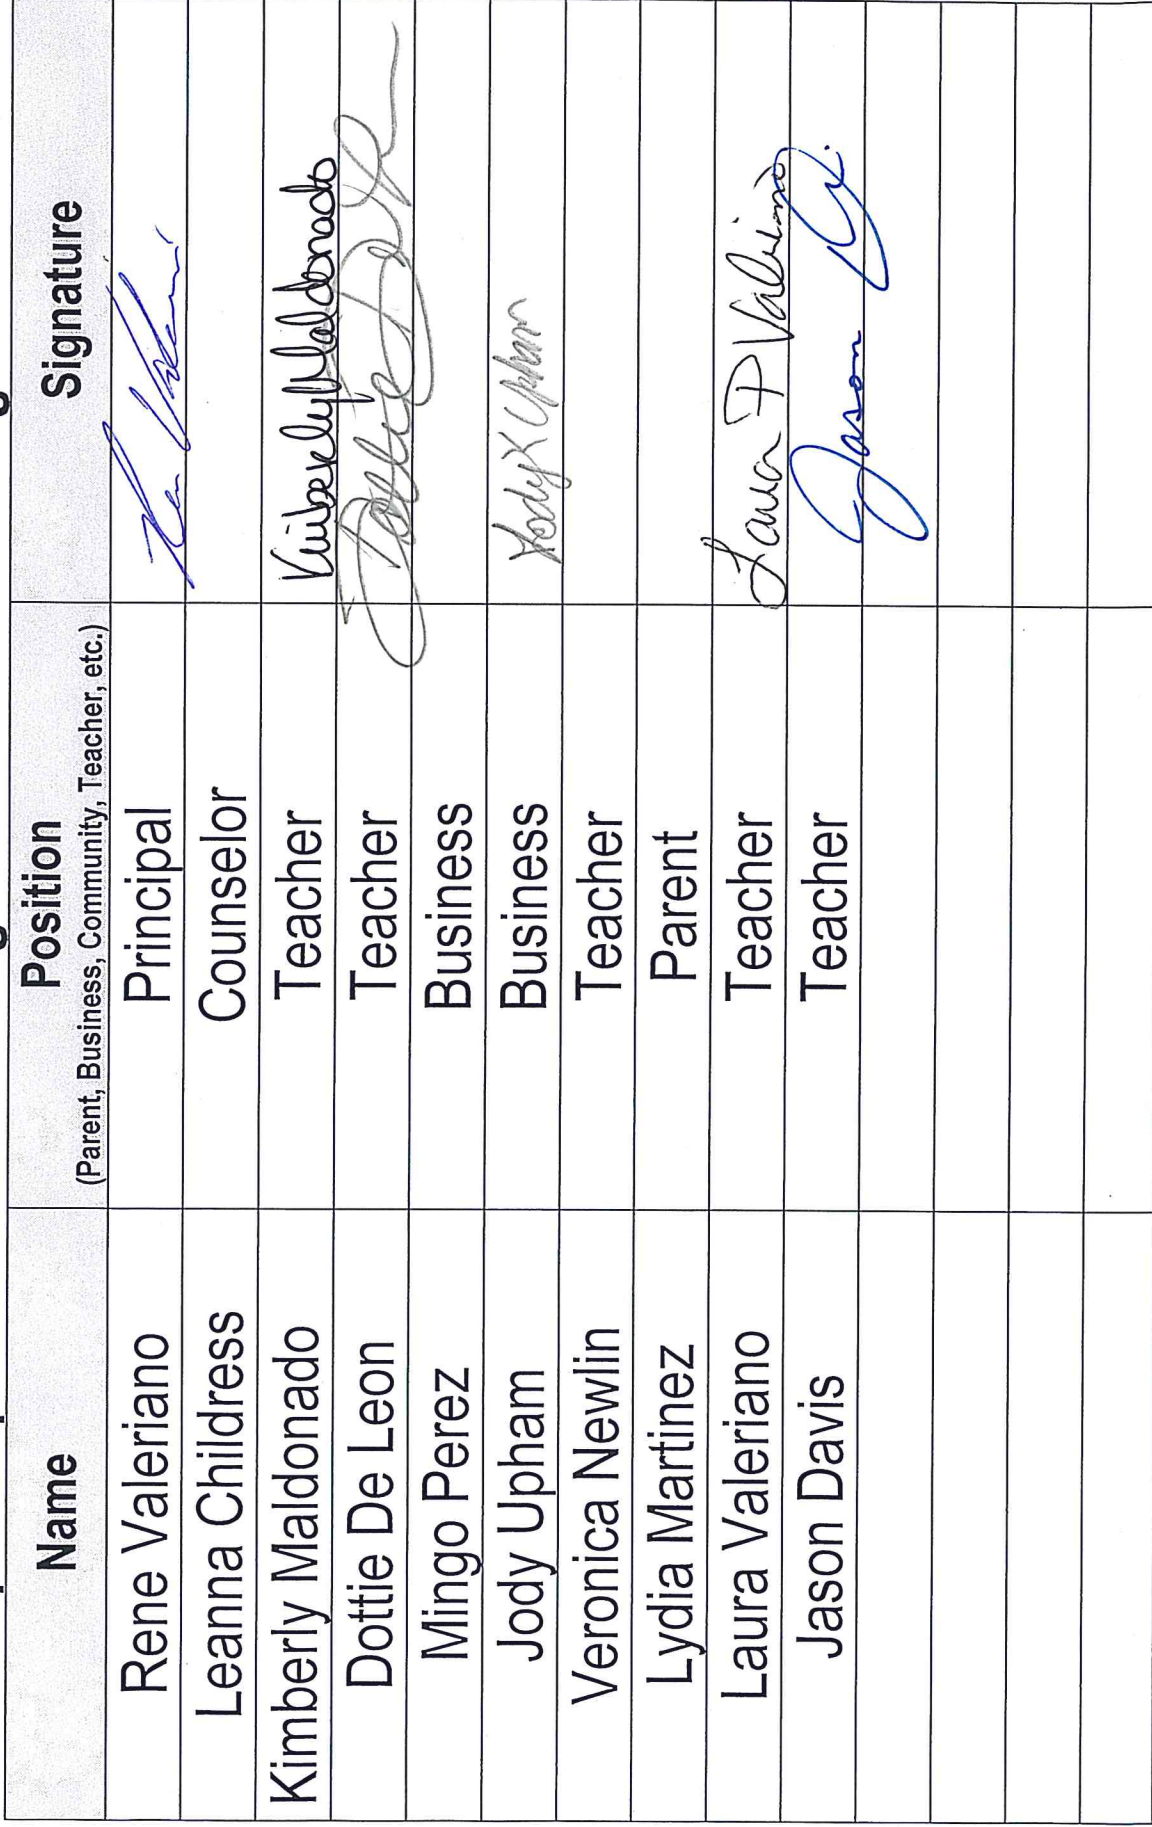 Name Position Signature
(Parent, Business, Community, Teacher, etc.)
Rene Valeriano Principal
Leanna Childress Counselor
Kimberly Maldonado Teacher Kimberly Maldonado
Dottie De Leon Teacher Dottie De Leon
Mingo Perez Business
Jody Upham Business Jody K Upham
Veronica Newlin Teacher
Lydia Martinez Parent
Laura Valeriano Teacher Laura P Valeriano
Jason Davis Teacher Jason